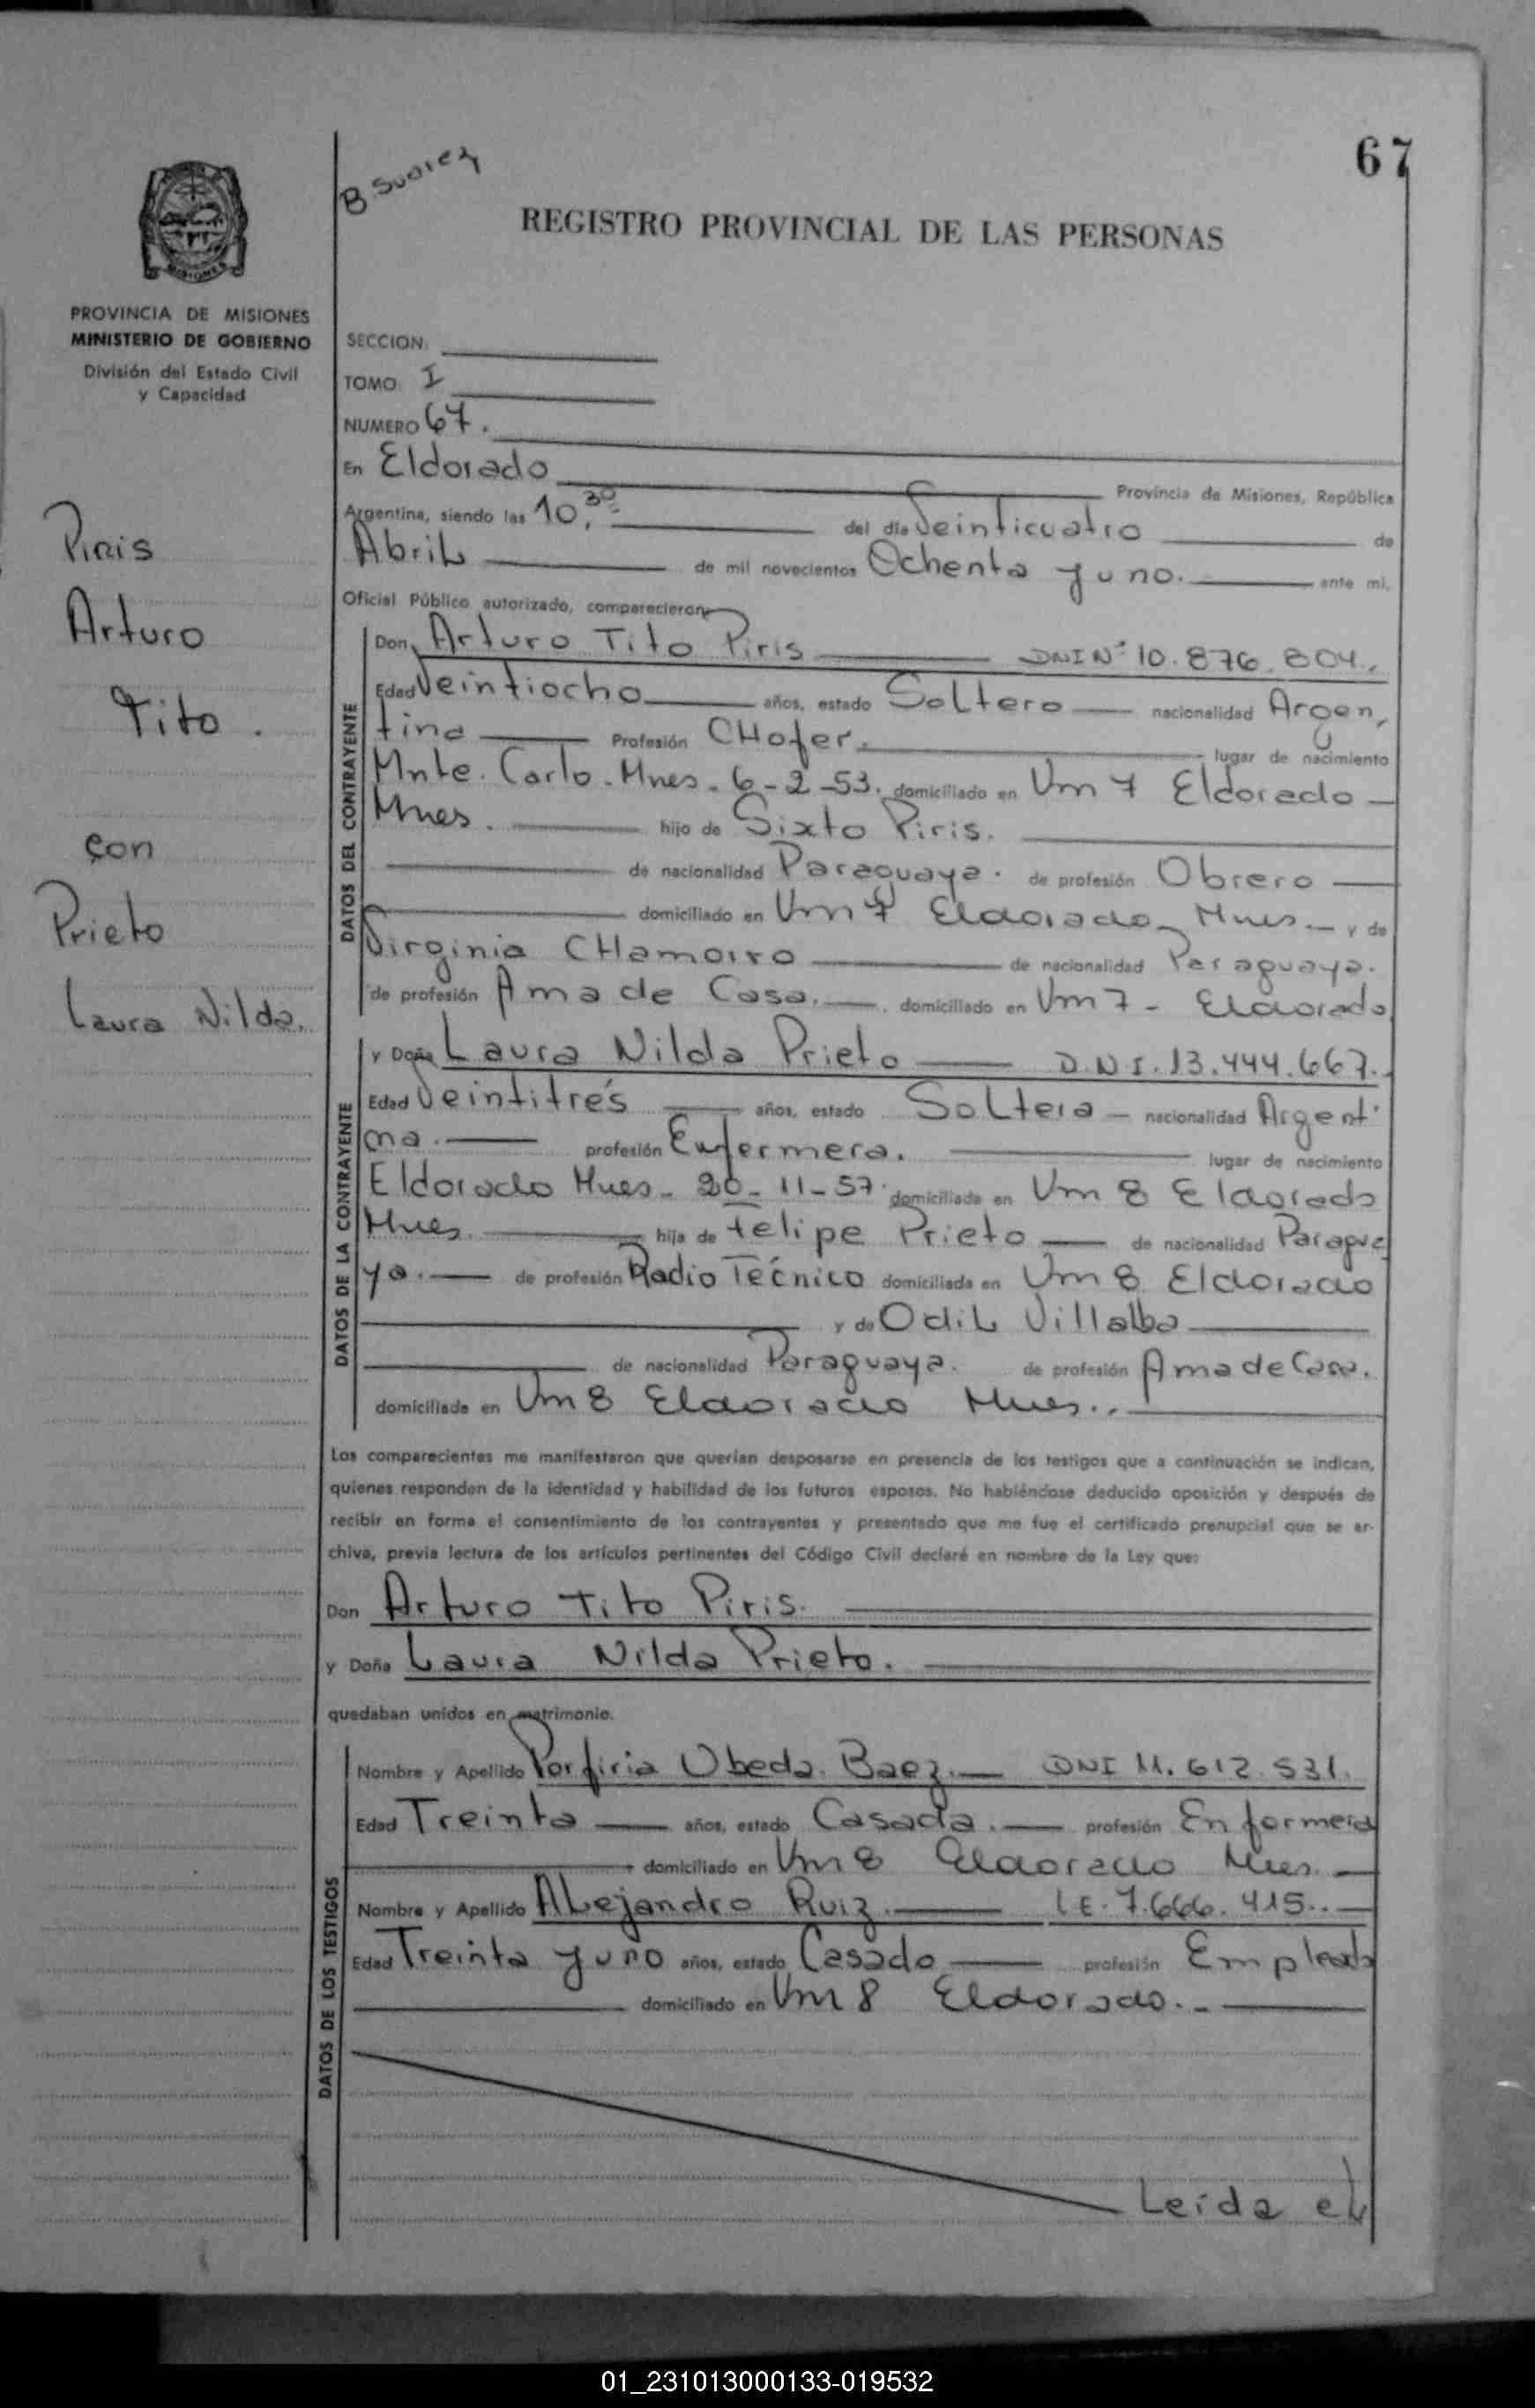 67
B. Suarez
REGISTRO PROVINCIAL DE LAS PERSONAS
MISIONES
PROVINCIA DE MISIONES
MINISTERIO DE GOBIERNO
División del Estado Civil
y Capacidad
Piris
Arturo
Tito.
con
Prieto
Laura Nilda.
SECCION:
TOMO: I
NUMERO 67.
En Eldorado Provincia de Misiones, República
Argentina, siendo las 10,30 del día Veinticuatro de
Abril de mil novecientos Ochenta y uno. ante mi,
Oficial Público autorizado, comparecieron
DATOS DEL CONTRAYENTE
Don, Arturo Tito Piris DNI Nº 10.876.804.
Edad Veintiocho años, estado Soltero nacionalidad Argen,
tina Profesión CHofer. lugar de nacimiento
Mnte. Carlo - Mnes - 6-2-53. domiciliado en Km 7 Eldorado
Mnes. hijo de Sixto Piris.
de nacionalidad Paraguaya. de profesión Obrero
domiciliado en Km 7 Eldorado Mnes. y de
Virginia CHamorro de nacionalidad Paraguaya.
de profesión Ama de Casa. domiciliado en Km 7 - Eldorado
DATOS DE LA CONTRAYENTE
y Doña Laura Nilda Prieto D.N.I. 13.444.667.
Edad Veintitrés años, estado Soltera nacionalidad Argent
ina. profesión Enfermera. lugar de nacimiento
Eldorado Mnes - 20-11-57. domiciliada en Km 8 Eldorado
Mnes. hija de Felipe Prieto de nacionalidad Paragua
ya. de profesión Radio Técnico domiciliada en Km 8 Eldorado
y de Odil Villalba
de nacionalidad Paraguaya. de profesión Ama de Casa.
domiciliada en Km 8 Eldorado Mnes..
Los comparecientes me manifestaron que querían desposarse en presencia de los testigos que a continuación se indican,
quienes responden de la identidad y habilidad de los futuros esposos. No habiéndose deducido oposición y después de
recibir en forma el consentimiento de los contrayentes y presentado que me fue el certificado prenupcial que se ar-
chiva, previa lectura de los artículos pertinentes del Código Civil declaré en nombre de la Ley que:
Don Arturo Tito Piris.
y Doña Laura Nilda Prieto.
quedaban unidos en matrimonio.
DATOS DE LOS TESTIGOS
Nombre y Apellido Porfiria Ubeda Baez. DNI 11.612.531.
Edad Treinta años, estado Casada. profesión Enfermera
domiciliado en Km 8 Eldorado Mnes.
Nombre y Apellido Alejandro Ruiz. LE. 7.666.415..
Edad Treinta y uno años, estado Casado profesión Empleado
domiciliado en Km 8 Eldorado..
Leída el
01_231013000133-019532